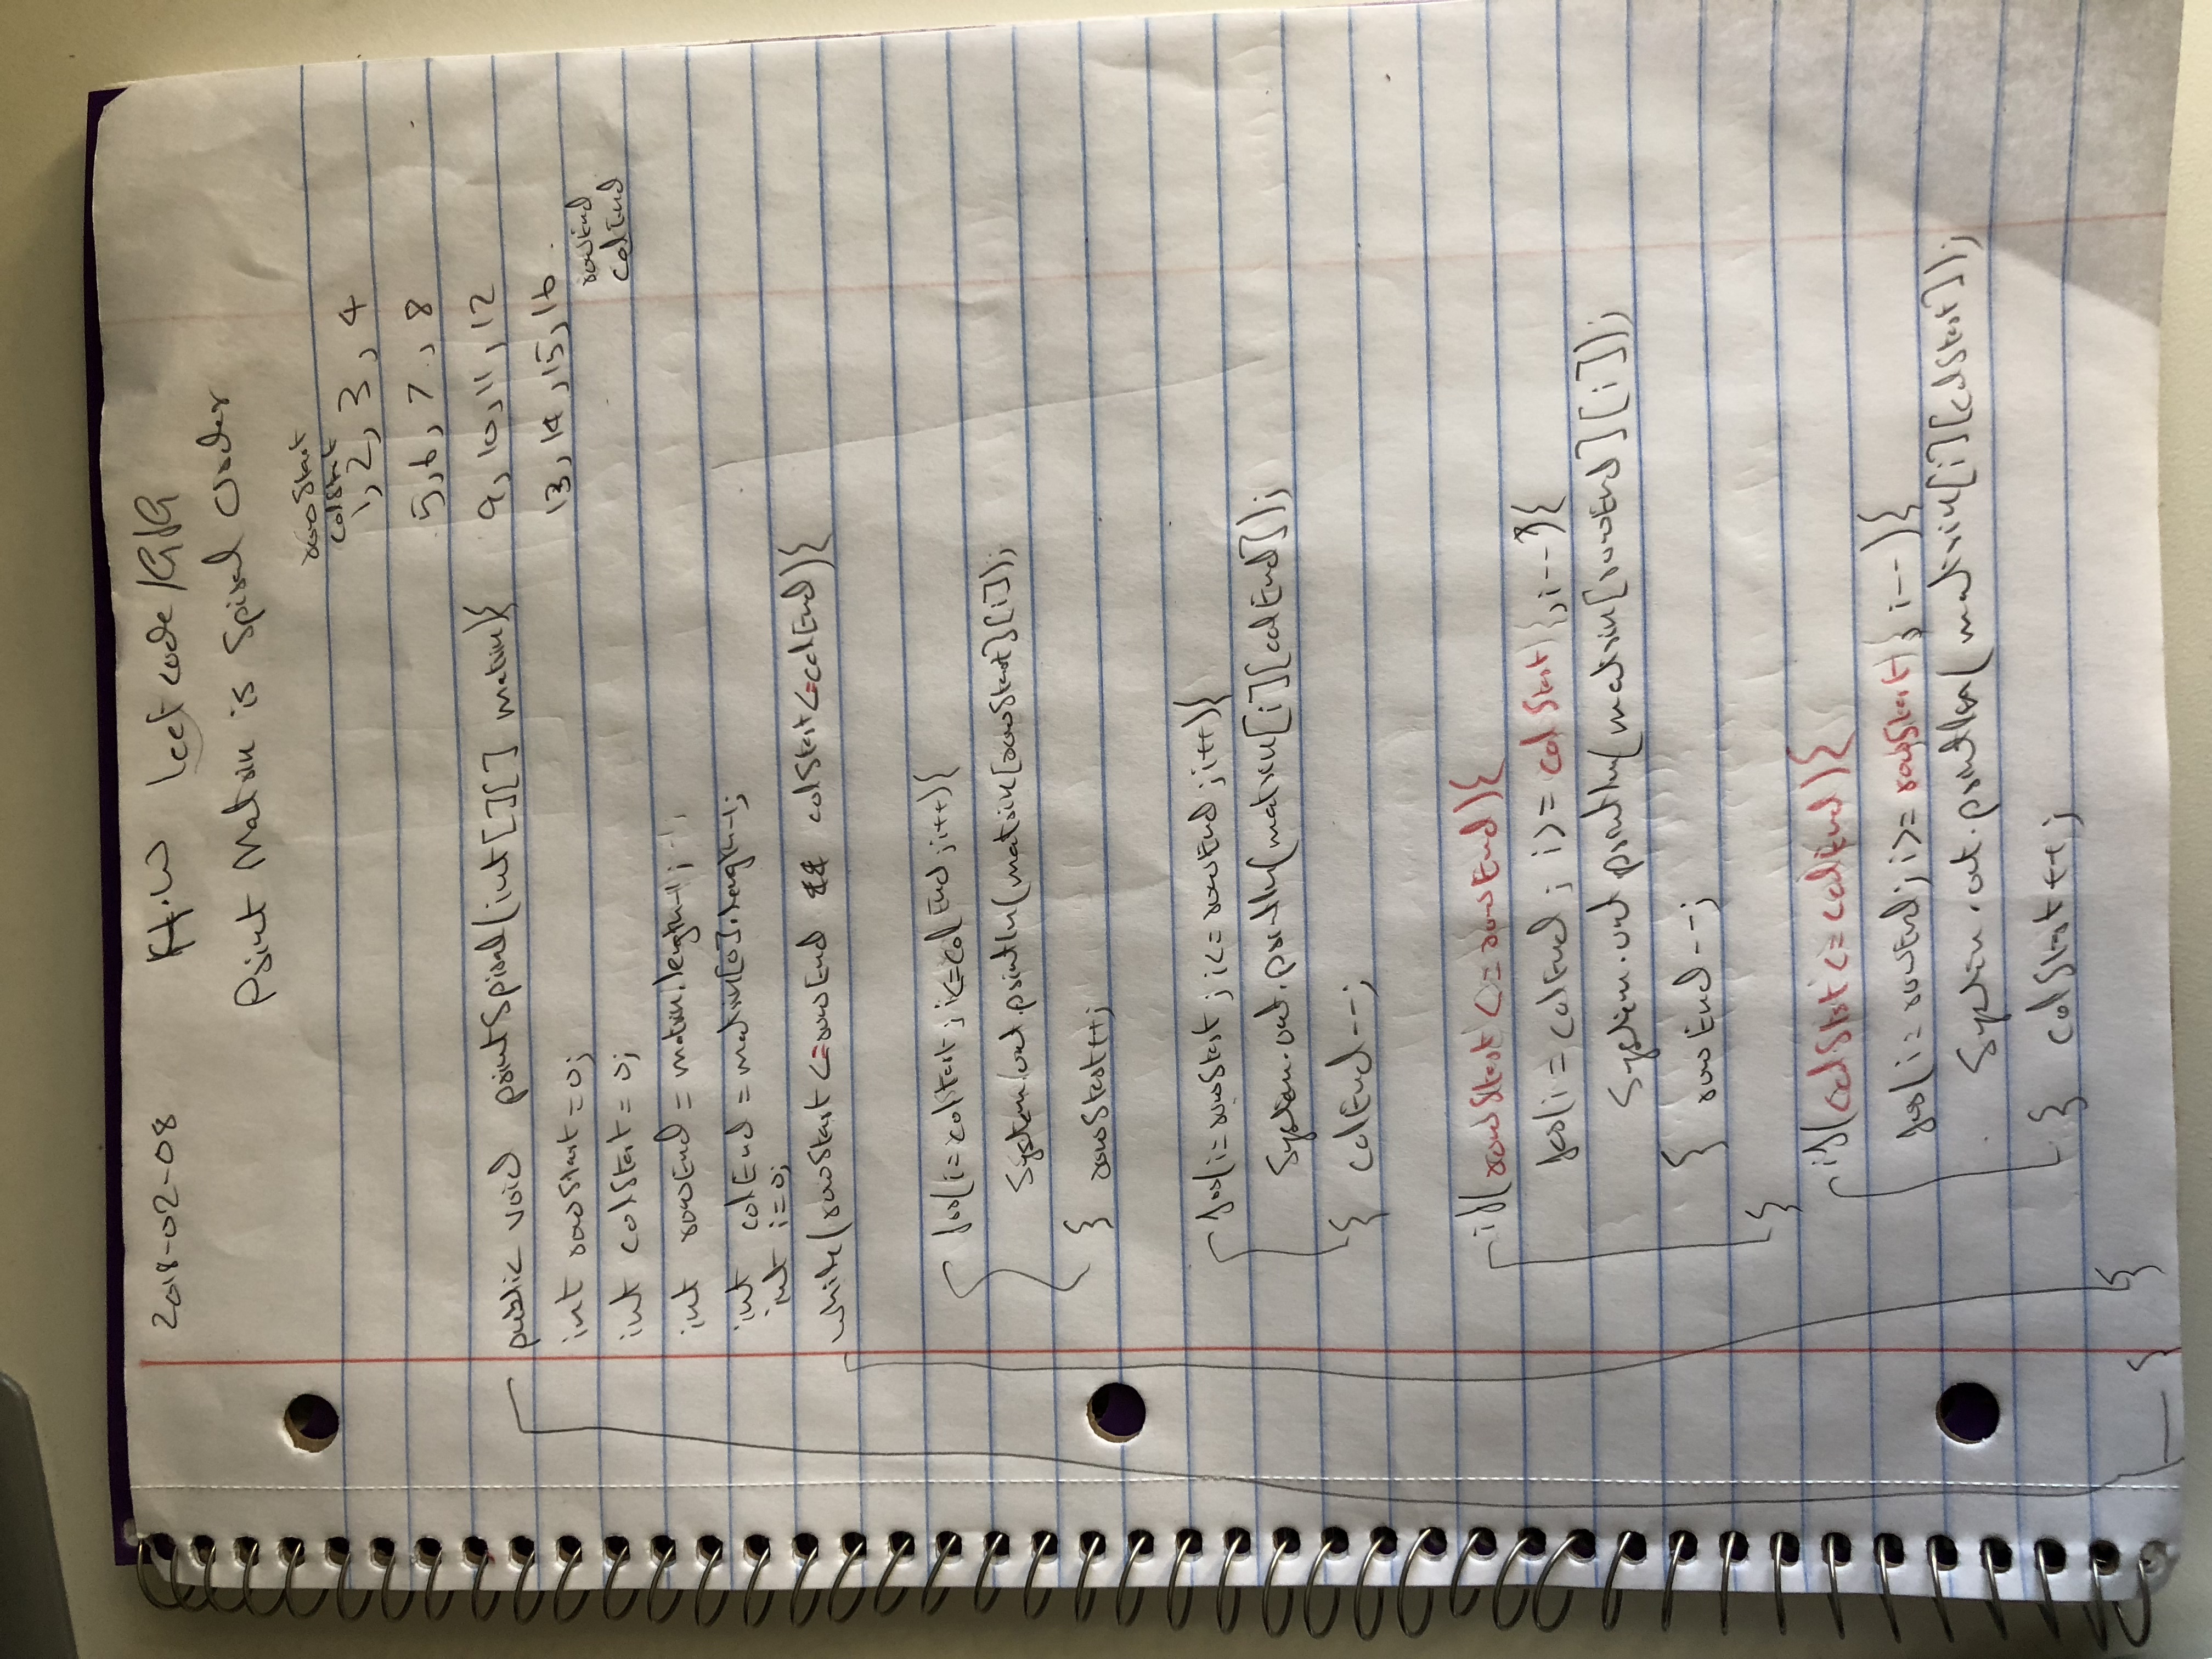 2018-02-08 H.W Leetcode/GfG
Print Matrix is Spiral Order
rowStart
colStart
1, 2, 3, 4
5, 6, 7, 8
9, 10, 11, 12
13, 14, 15, 16
rowEnd
colEnd
public void printSpiral(int[][] matrix){
int rowStart = 0;
int colStart = 0;
int rowEnd = matrix.length-1;
int colEnd = matrix[0].length-1;
int i=0;
while(rowStart<=rowEnd && colStart<=colEnd){
for(i=colStart; i<=colEnd; i++){
System.out.println(matrix[rowStart][i]);
} rowStart++;
for(i=rowStart; i<=rowEnd; i++){
System.out.println(matrix[i][colEnd]);
} colEnd--;
if(rowStart<=rowEnd){
for(i=colEnd; i>=colStart; i--){
System.out.println(matrix[rowEnd][i]);
} rowEnd--;
}
if(colStart<=colEnd){
for(i=rowEnd; i>=rowStart; i--){
System.out.println(matrix[i][colStart]);
} colStart++;
}
}